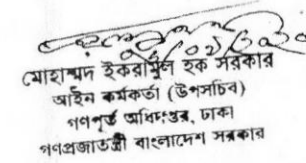 মোহাম্মদ ইকরামুল হক সরকার
আইন কর্মকর্তা (উপসচিব)
গণপূর্ত অধিদপ্তর, ঢাকা
গণপ্রজাতন্ত্রী বাংলাদেশ সরকার